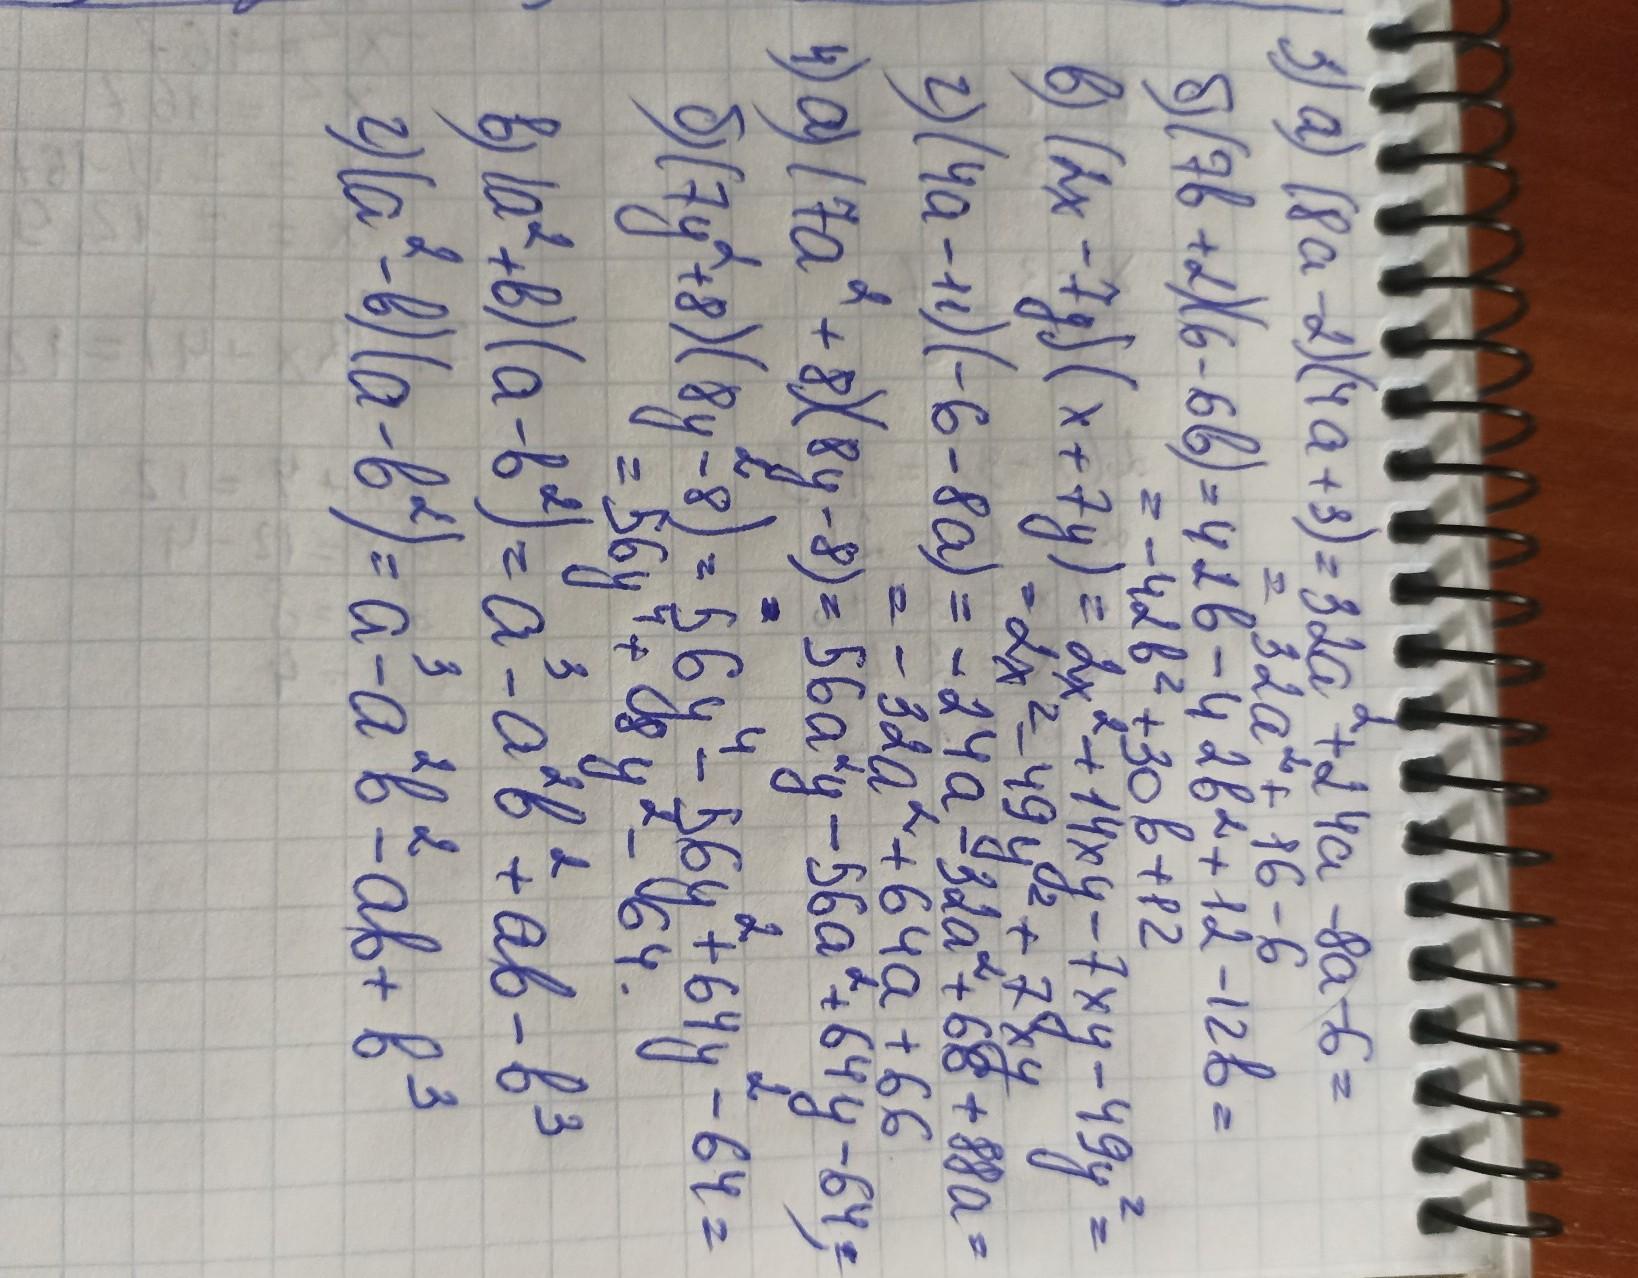 3) а) (8a-2)(4a+3)=32a²+24a-8a-6=
=32a²+16-6
б) (7b+2)(6-6b)=42b-42b²+12-12b=
=-42b²+30b+12
в) (2x-7y)(x+7y)=2x²+14xy-7xy-49y²=
=2x²-49y²+7xy
г) (4a-11)(-6-8a)=-24a-32a²+66+88a=
=-32a²+64a+66
4) а) (7a²+8)(8y-8)=56a²y-56a²+64y-64=
б) (7y²+8)(8y²-8)=56y⁴-56y²+64y²-64=
=56y⁴+8y²-64.
в) (a²+b)(a-b²)=a³-a²b²+ab-b³
г) (a²-b)(a-b²)=a³-a²b²-ab+b³